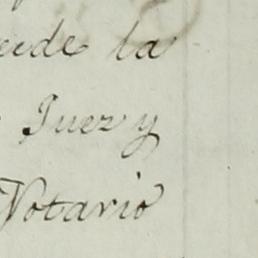 la
Juez y
Notario